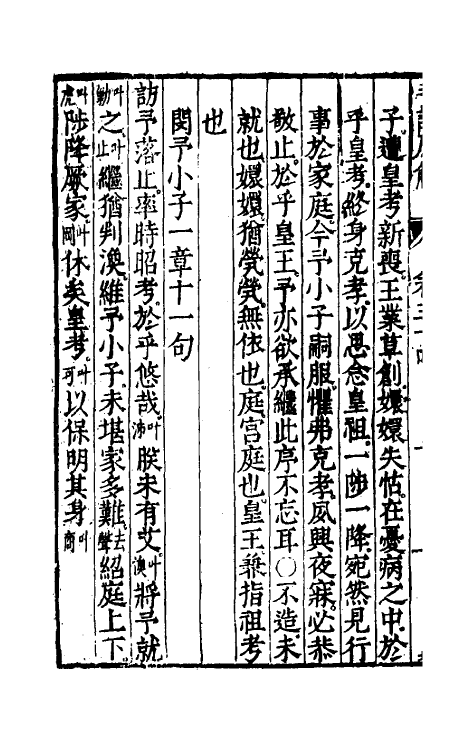 子遭皇考新喪王業草創嬛嬛失怙在憂病之中於
乎皇考終身克孝以思念皇祖一陟一降宛然見行
事於家庭今予小子嗣服懼弗克孝夙興夜寐必恭
敬止於乎皇王予亦欲承繼此序不忘耳○不造未
就也嬛嬛猶煢煢無依也庭宫庭也皇王兼指祖考
也
閔予小子一章十一句
訪予落止率時昭考於乎悠哉朕未有艾將予就
之繼猶判渙維予小子未堪家多難去聲紹庭上下
陟降厥家休矣皇考以保明其身